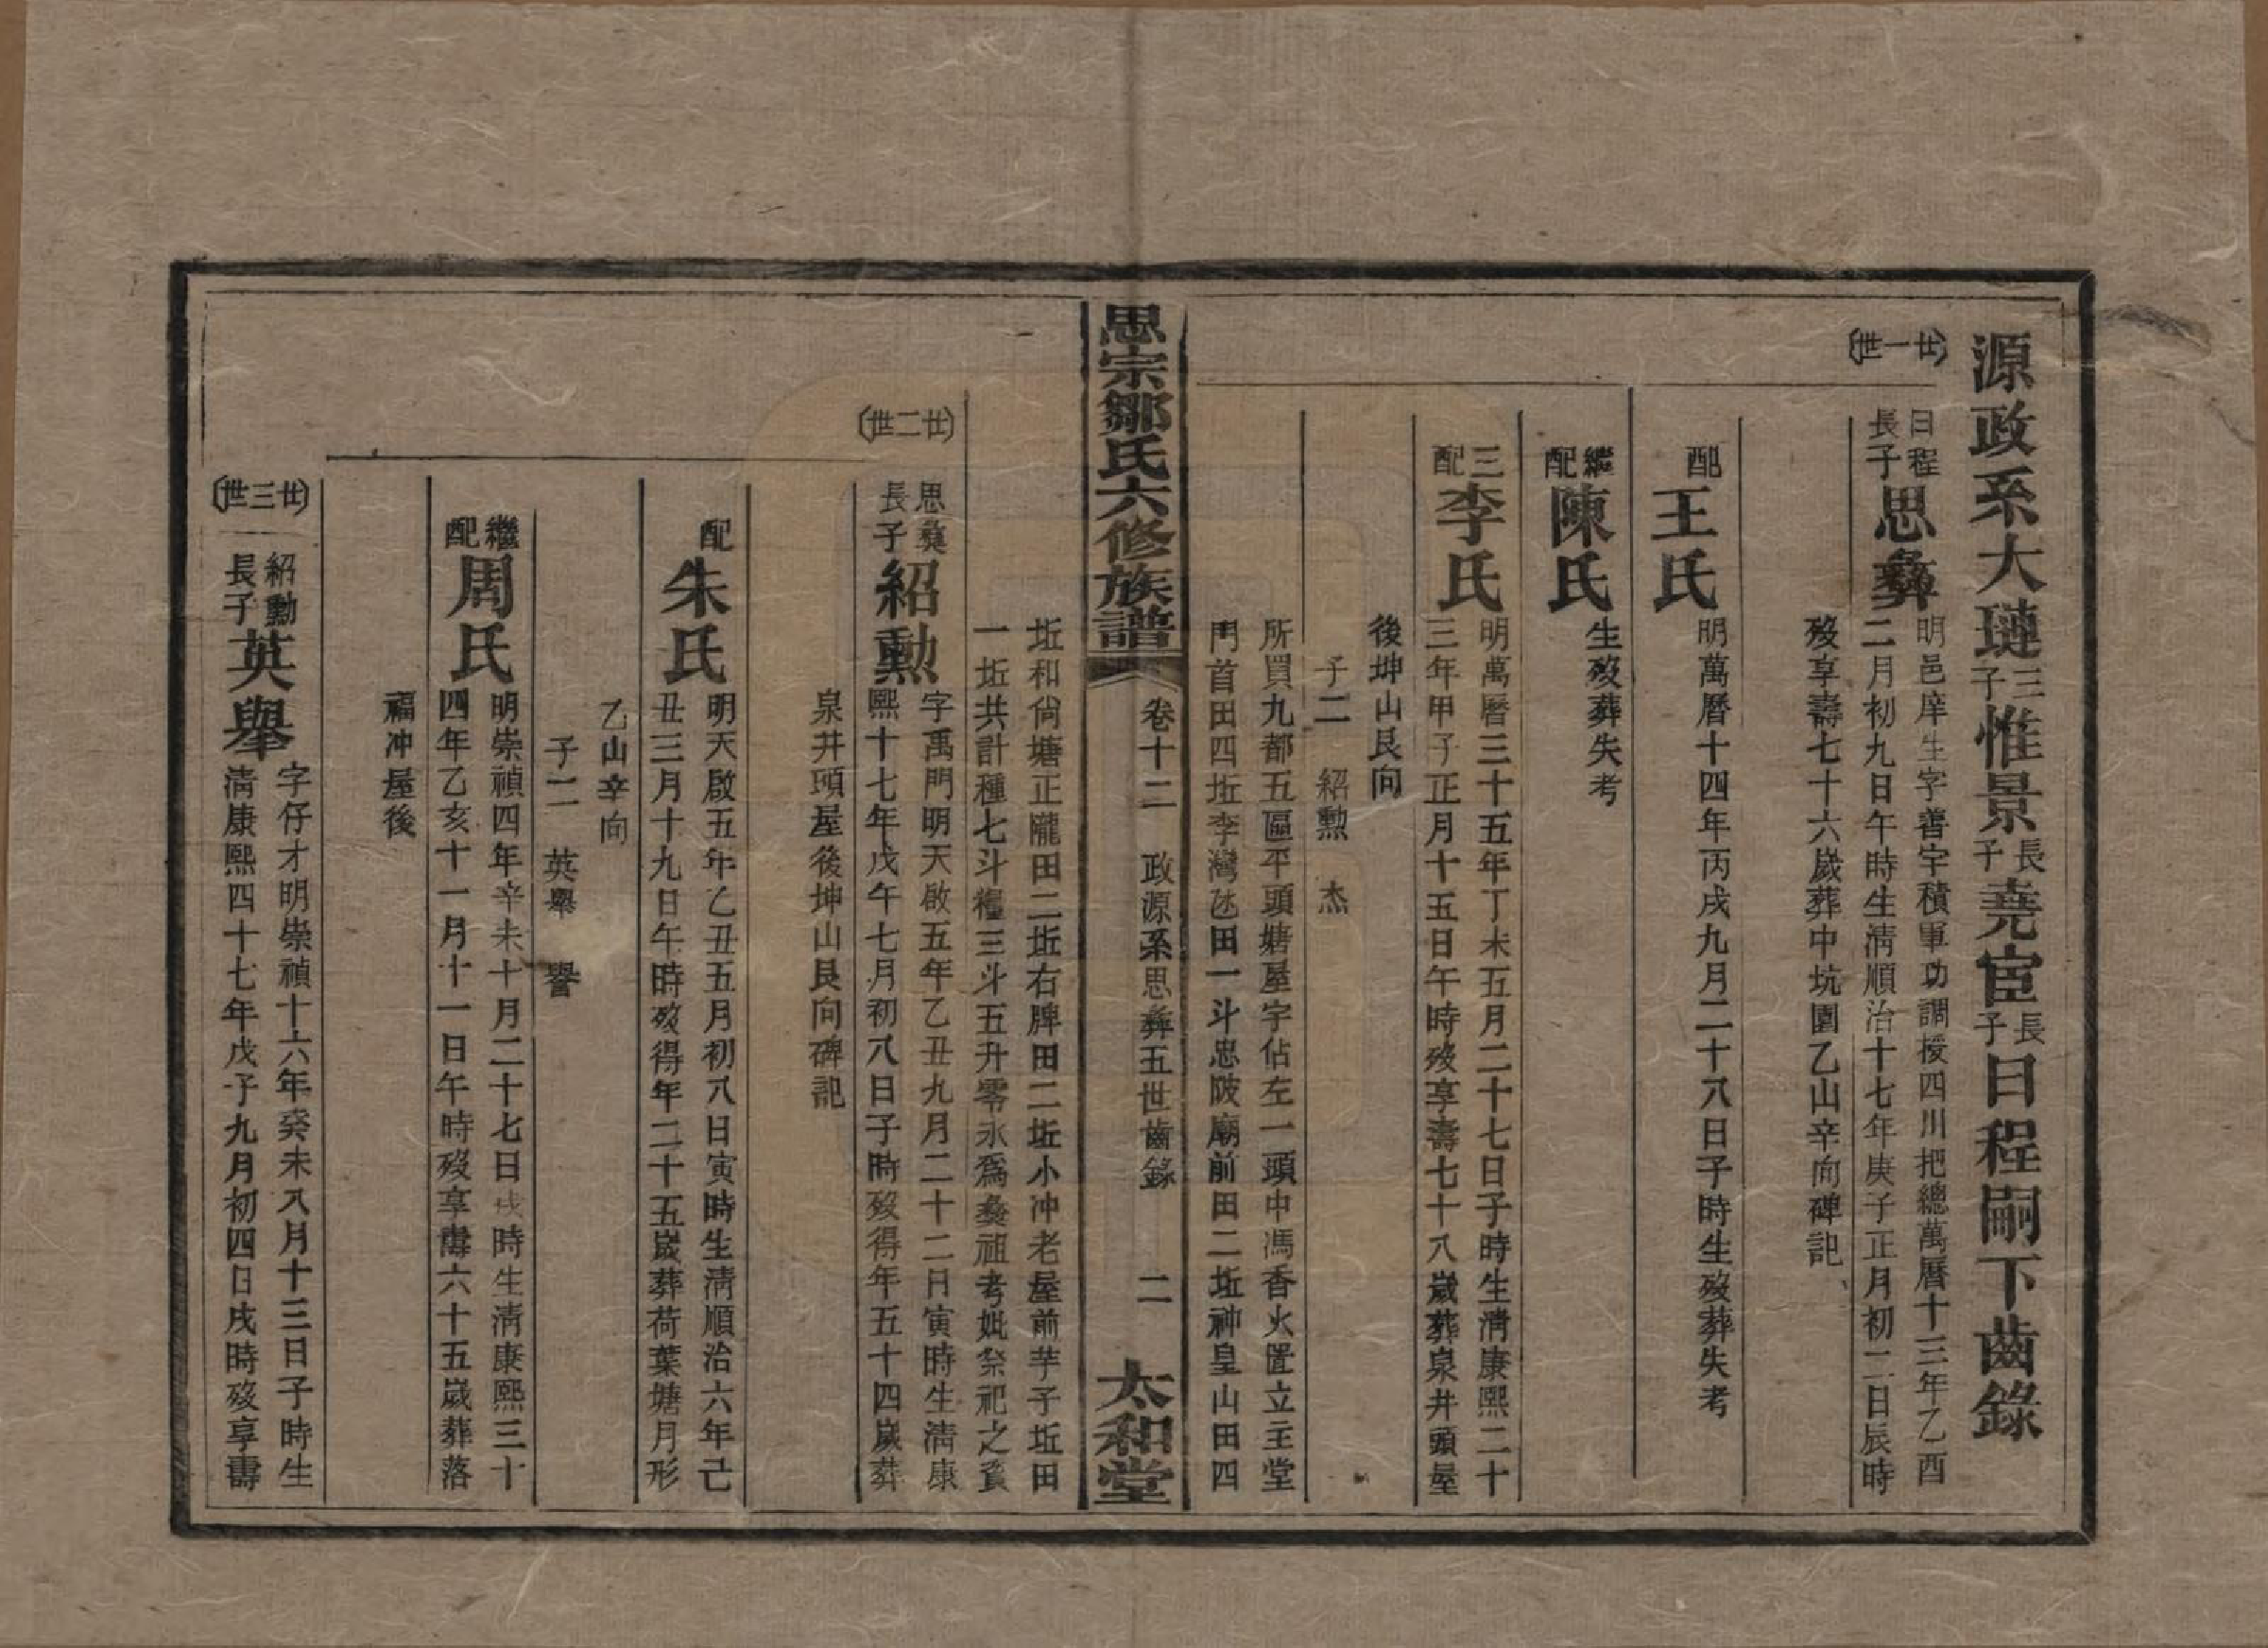 源政系大璉三子惟景長子堯宦長子日程嗣下齒錄
廿一世
日程長子思彝
明邑庠生字善字積軍功調授四川把總萬曆十三年乙酉
二月初九日午時生清順治十七年庚子正月初二日辰時
歿享壽七十六歲葬中坑園乙山辛向碑記
配王氏
明萬曆十四年丙戌九月二十八日子時生歿葬失考
繼配陳氏
生歿葬失考
三配李氏
明萬曆三十五年丁未五月二十七日子時生清康熙二十
三年甲子正月十五日午時歿享壽七十八歲葬泉井頭屋
後坤山艮向
子二 紹勳 杰
所買九都五區平頭塘屋字佔左一頭中馮香火置立主堂
門首田四坵李灣氹田一斗忠陂廟前田二坵神皇山田四
思宗鄒氏六修族譜 卷十二 政源系思彝五世齒錄 二 太和堂
坵和尙塘正隴田二坵右脾田二坵小冲老屋前芋子坵田
一坵共計種七斗糧三斗五升零永爲彝祖考妣祭祀之資
廿二世
思彝長子紹勳
字禹門明天啟五年乙丑九月二十二日寅時生清康
熙十七年戊午七月初八日子時歿得年五十四歲葬
泉井頭屋後坤山艮向碑記
配朱氏
明天啟五年乙丑五月初八日寅時生清順治六年己
丑三月十九日午時歿得年二十五歲葬荷葉塘月形
乙山辛向
子二 英舉 譽
繼配周氏
明崇禎四年辛未十月二十七日戌時生清康熙三十
四年乙亥十一月十一日午時歿享壽六十五歲葬落
福冲屋後
廿三世
紹勳長子英舉
字仔才明崇禎十六年癸未八月十三日子時生
清康熙四十七年戊子九月初四日戌時歿享壽